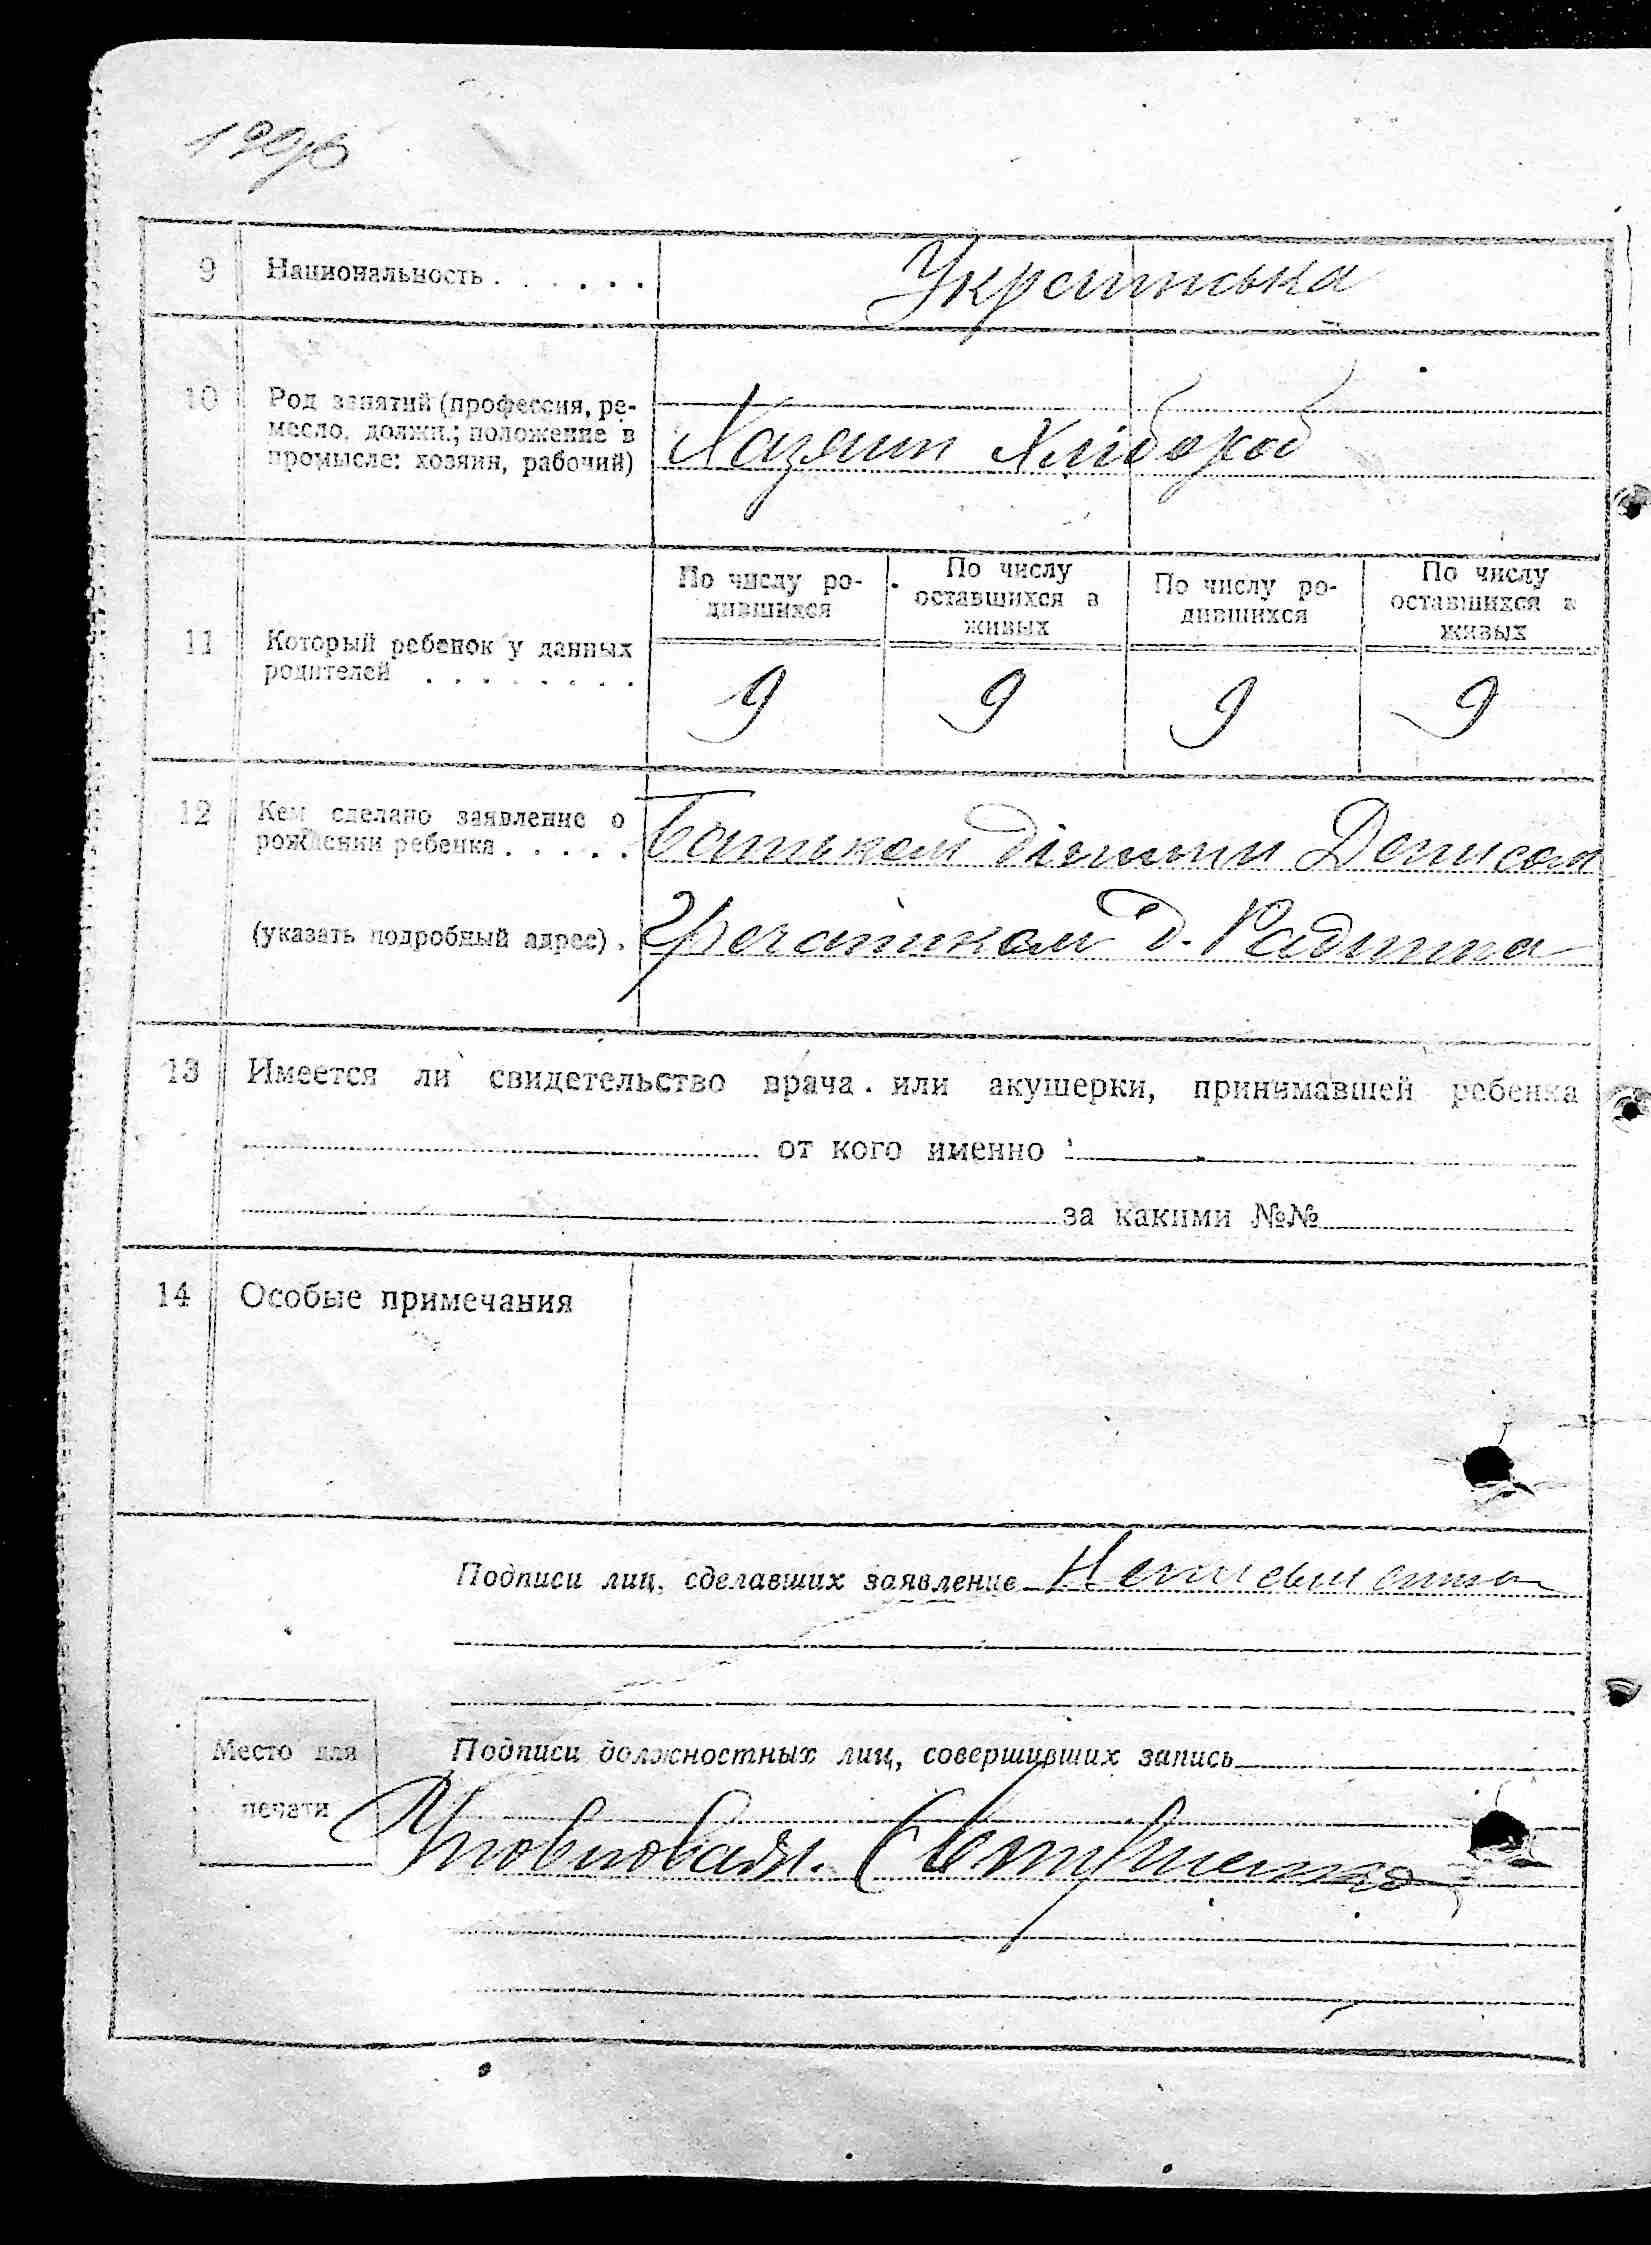 9 Национальность . . . . . . Українська
10 Род занятий (профессия, ре-
месло, должн.; положение в
промысле: хозяин, рабочий) Хазяин Хлібороб
11 Который ребенок у данных
родителей . . . . . . . .
По числу ро-
дившихся
По числу
оставшихся в
живых
По числу ро-
дившихся
По числу
оставшихся в
живых
9 9 9 9
12 Кем сделано заявление о
рождении ребенка . . . . . Батьком дитини Денисом
(указать подробный адрес) . д.
13 Имеется ли свидетельство врача или акушерки, принимавшей ребенка
от кого именно
за какими №№
14 Особые примечания
Подписи лиц, сделавших заявление
Подписи должностных лиц, совершивших запись
Место для
печати